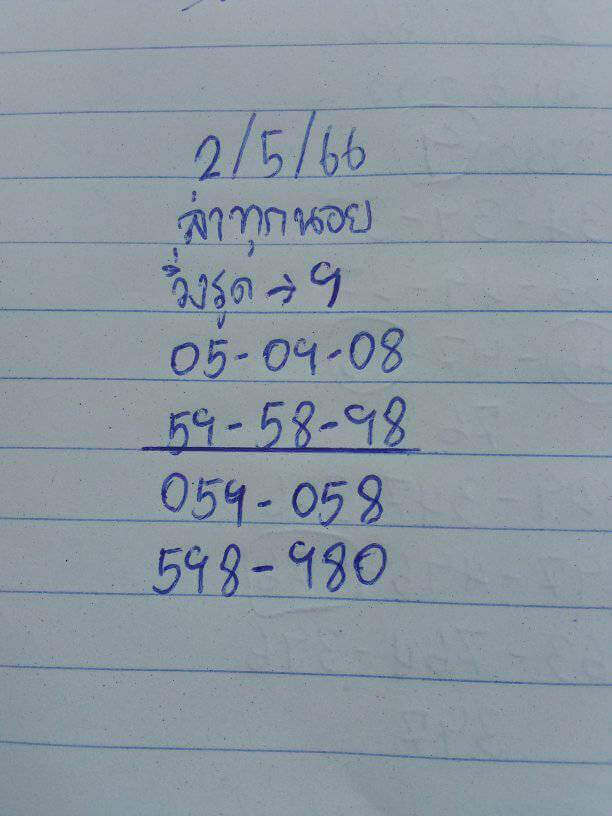 2/5/66
ล่าทุกนอย
วิ่งรูด→9
05-09-08
59-58-98
059-058
598-980